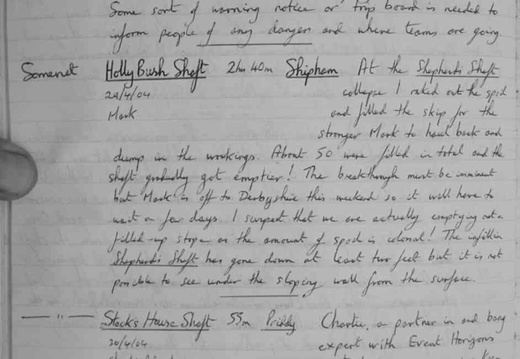 Some sort of warning notice or trip board is needed to
inform people of any danger and where teams are going.
Somerset Holly Bush Shaft 2hr 40m Shipham At the Shepherd's Shaft
29/4/04 collapse I raked out the spoil
Mark and filled the skip for the
stronger Mark to haul back and
dump in the workings. About 50 were filled in total and the
shaft gradually got emptier! The breakthrough must be imminent
but Mark is off to Derbyshire this weekend so it will have to
wait a few days. I suspect that we are actually emptying out a
filled-up stope as the amount of spoil is colossal! The infill in
Shepherd's Shaft has gone down at least two feet but it is not
possible to see under the sloping wall from the surface.
—— " —— Stock's House Shaft 55m Priddy Charlie, a partner in and
30/4/04 expert with Event Horizons